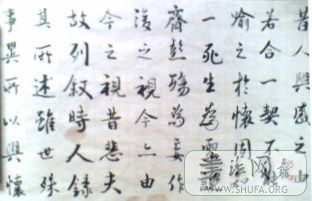 昔人興感之由
若合一契不能
喻之於懷固
一死生為虛誕
齊彭殤為妄作
後之視今亦由
今之視昔悲夫
故列叙時人錄
其所述雖世殊
事異所以興懷
WWW.SHUFA.ORG